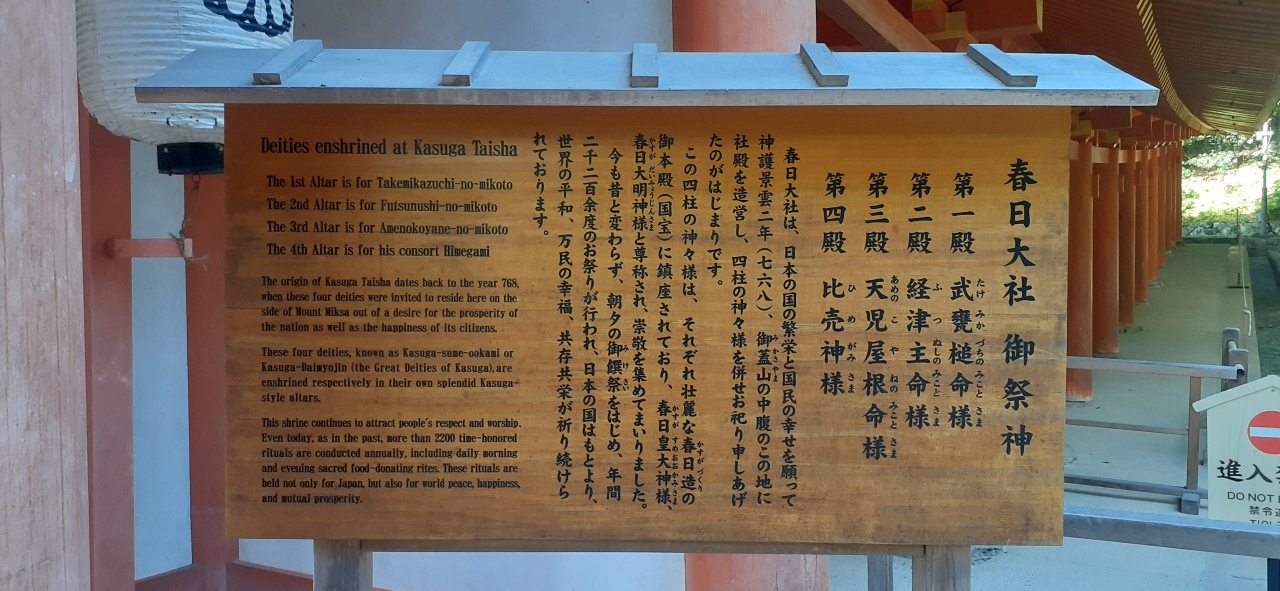 Deities enshrined at Kasuga Taisha
The 1st Altar is for Takemikazuchi-no-mikoto
The 2nd Altar is for Futsunushi-no-mikoto
The 3rd Altar is for Amenokoyane-no-mikoto
The 4th Altar is for his consort Himegami
The origin of Kasuga Taisha dates back to the year 768,
when these four deities were invited to reside here on the
side of Mount Miksa out of a desire for the prosperity of
the nation as well as the happiness of its citizens.
These four deities, known as Kasuga-sume-ookami or
Kasuga-Daimyojin (the Great Deities of Kasuga), are
enshrined respectively in their own splendid Kasuga-
style altars.
This shrine continues to attract people's respect and worship.
Even today, as in the past, more than 2200 time-honored
rituals are conducted annually, including daily morning
and evening sacred food-donating rites. These rituals are
held not only for Japan, but also for world peace, happiness,
and mutual prosperity.
春日大社 御祭神
第一殿 武甕槌命様
たけみかづちのみことさま
第二殿 経津主命様
ふつぬしのみことさま
第三殿 天児屋根命様
あめのこやねのみことさま
第四殿 比売神様
ひめがみさま
春日大社は、日本の国の繁栄と国民の幸せを願って
神護景雲二年（七六八）、御蓋山の中腹のこの地に
みかさやま
社殿を造営し、四柱の神々様を併せお祀り申しあげ
たのがはじまりです。
この四柱の神々様は、それぞれ壮麗な春日造の
かすがづくり
御本殿（国宝）に鎮座されており、春日皇大神様、
かすがすめおおかみさま
春日大明神様と尊称され、崇敬を集めてまいりました。
かすがだいみょうじんさま
今も昔と変わらず、朝夕の御饌祭をはじめ、年間
みけさい
二千二百余度のお祭りが行われ、日本の国はもとより、
世界の平和、万民の幸福、共存共栄が祈り続けら
れております。
進入
DO NOT
禁令